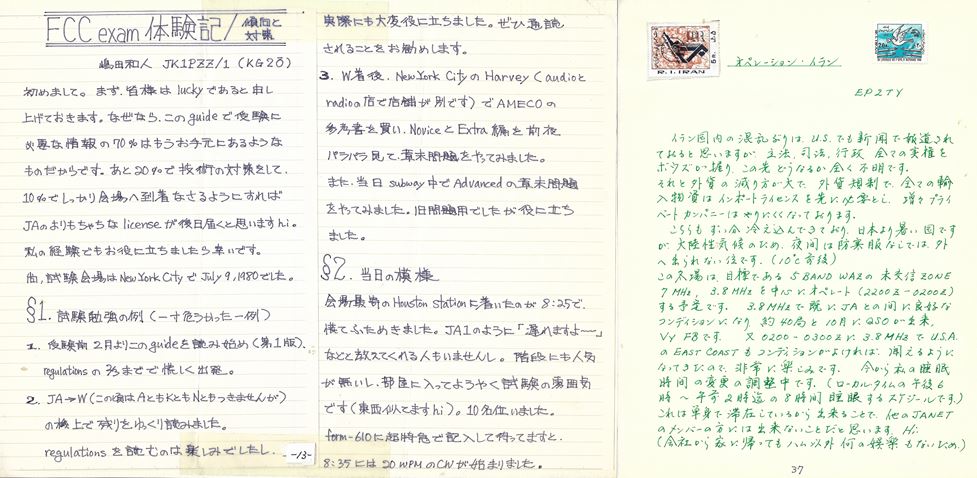 FCC exam 体験記/傾向と対策
嶋田和人 JK1PZZ/1 (KG2Ö)
初めまして。まず、皆様は luckyであると申し
上げておきます。なぜなら、このguideで受験に
必要な情報の70%はもうお手元にあるような
ものだからです。あと20%で技術の対策をして、
10%でしっかり会場へ到着なさるようにすれば
JAのよりもちゃちな licenseが後日届くと思いますhi.
私の経験でもお役に立ちましたら幸いです。
尚、試験会場はNew York CityでJuly 9, 1980でした。
§1. 試験勉強の例 (一寸危うかった一例)
1. 受験前2月よりこのguideを読み始め(第1版)、
regulationsの⅔までで慌しく出発。
2. JA→W(この頃はAともKともNともつきませんが)
の機上で残りをゆっくり読みました。
regulationsを読むのは楽しみでしたし、
-13-
実際にも大変役に立ちました。ぜひ通読
されることをお勧めします。
3. W着後、New York CityのHarvey(audioと
radioの店で店舗が別です)でAMECOの
参考書を買い、NoviceとExtra編を前夜
パラパラ見て、章末問題をやってみました。
また、当日 subway中でAdvancedの章末問題
をやってみました。旧問題用でしたが役に立ち
ました。
§2. 当日の模様
会場最寄のHouston stationに着いたのが8:25で、
慌てふためきました。JA1のように「遅れますよ~~」
などと教えてくれる人もいませんし。階段にも人気
が無いし、部屋に入ってようやく試験の雰囲気
です(東西似てますhi)。10名位いました。
form-610に超特急で記入して待ってますと、
8:35には20WPMのCWが始まりました。
R.I.IRAN
オペレーション・イラン
EP2TY
イラン国内の混乱ぶりは、U.S.でも新聞で報道され
ておると思いますが、立法、司法、行政 全ての実権を
ボウズが握り、この先どうなるか全く不明です。
それと外貨の減り方が大で、外貨規制で、全ての輸
入物資はインポートライセンスを必要とし、増々プライ
ベートカンパニーはやりにくくなっております。
こちらもずい分冷え込んできており、日本より暑い国です
が大陸性気候のため、夜間は防寒服なしでは、外
へ出られない位です。(10℃前後)
この冬場は、目標である5BAND WAZの未交信ZONE
7MHz, 3.8MHzを中心にオペレート(2200Z-0200Z)
する予定です。3.8MHzで既にJAとの間に良好な
コンディションになり 約40局と10月にQSOが出来、
VY FBです。又0200-0300Zに3.8MHzでU.S.A.
のEAST COASTもコンディションがよければ、聞えるように
なってきたので、非常に楽しみです。今から私の睡眠
時間の変更の調整中です。(ローカルタイムの午後6
時~午前2時迄の8時間睡眠するスケジールです。)
これは単身で滞在しているから出来ることで、他のJANET
のメンバーの方には出来ないことだと思います。Hi
(会社から家に帰ってもハム以外何の娯楽もないため。)
37